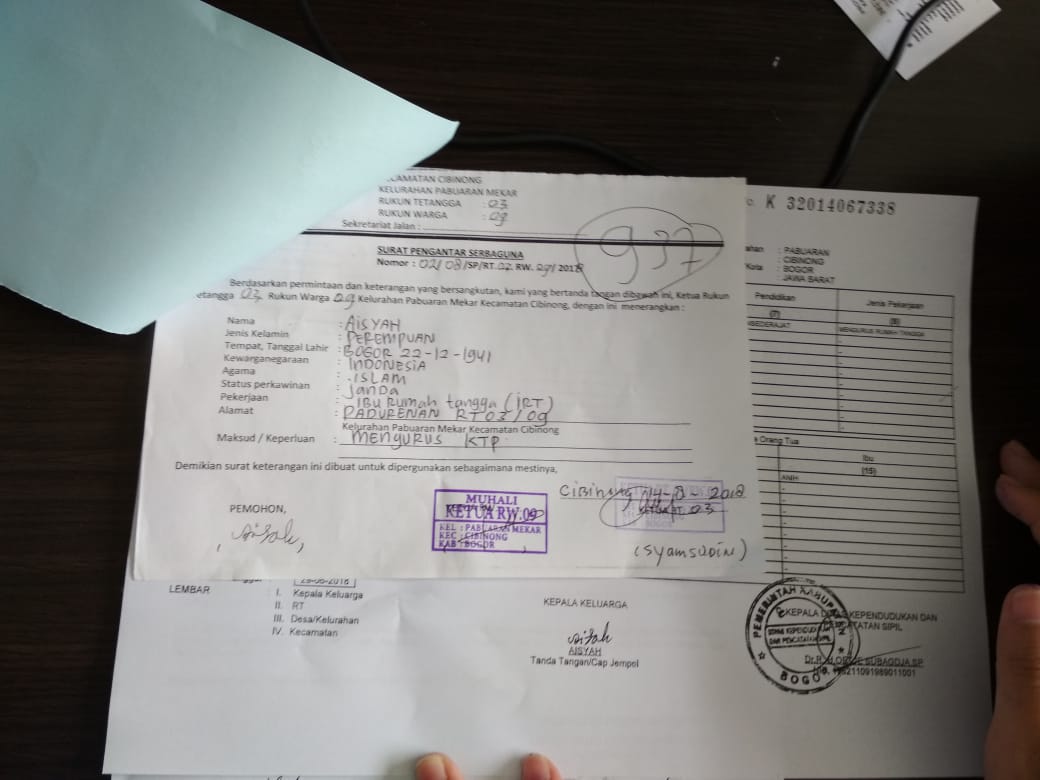 KELURAHAN PABUARAN MEKAR
RUKUN TETANGGA : 03
RUKUN WARGA : 09
Sekretariat Jalan :
937
SURAT PENGANTAR SERBAGUNA
Nomor : 02/08/SP/RT.02 RW. 09/2018
Berdasarkan permintaan dan keterangan yang bersangkutan, kami yang bertanda tangan dibawah ini, Ketua Rukun
etangga 03 Rukun Warga 09 Kelurahan Pabuaran Mekar Kecamatan Cibinong, dengan ini menerangkan :
Nama : AISYAH
Jenis Kelamin : PEREMPUAN
Tempat, Tanggal Lahir : BOGOR 22-12-1941
Kewarganegaraan : INDONESIA
Agama : ISLAM
Status perkawinan : JANDA
Pekerjaan : IBU RUMAH tangga (IRT)
Alamat : PADURENAN RT 03/09
Kelurahan Pabuaran Mekar Kecamatan Cibinong
Maksud / Keperluan : MENGURUS KTP
Demikian surat keterangan ini dibuat untuk dipergunakan sebagaimana mestinya,
Cibinong, 2018
PEMOHON,
MUHALI
KETUA RW.09
KEL : PABUARAN MEKAR
KEC : CIBINONG
KAB : BOGOR
(SYAMSUDIN)
K 32014067338
: PABUARAN
: CIBINONG
Kota : BOGOR
: JAWA BARAT
Pendidikan
Jenis Pekerjaan
(7)
(8)
MENGURUS RUMAH TANGGA
Orang Tua
Ibu
(15)
LEMBAR : I. Kepala Keluarga
II. RT
III. Desa/Kelurahan
IV. Kecamatan
KEPALA KELUARGA
AISYAH
Tanda Tangan/Cap Jempol
KEPALA DINAS KEPENDUDUKAN DAN
PENCATATAN SIPIL
PEMERINTAH KABUPATEN
BOGOR